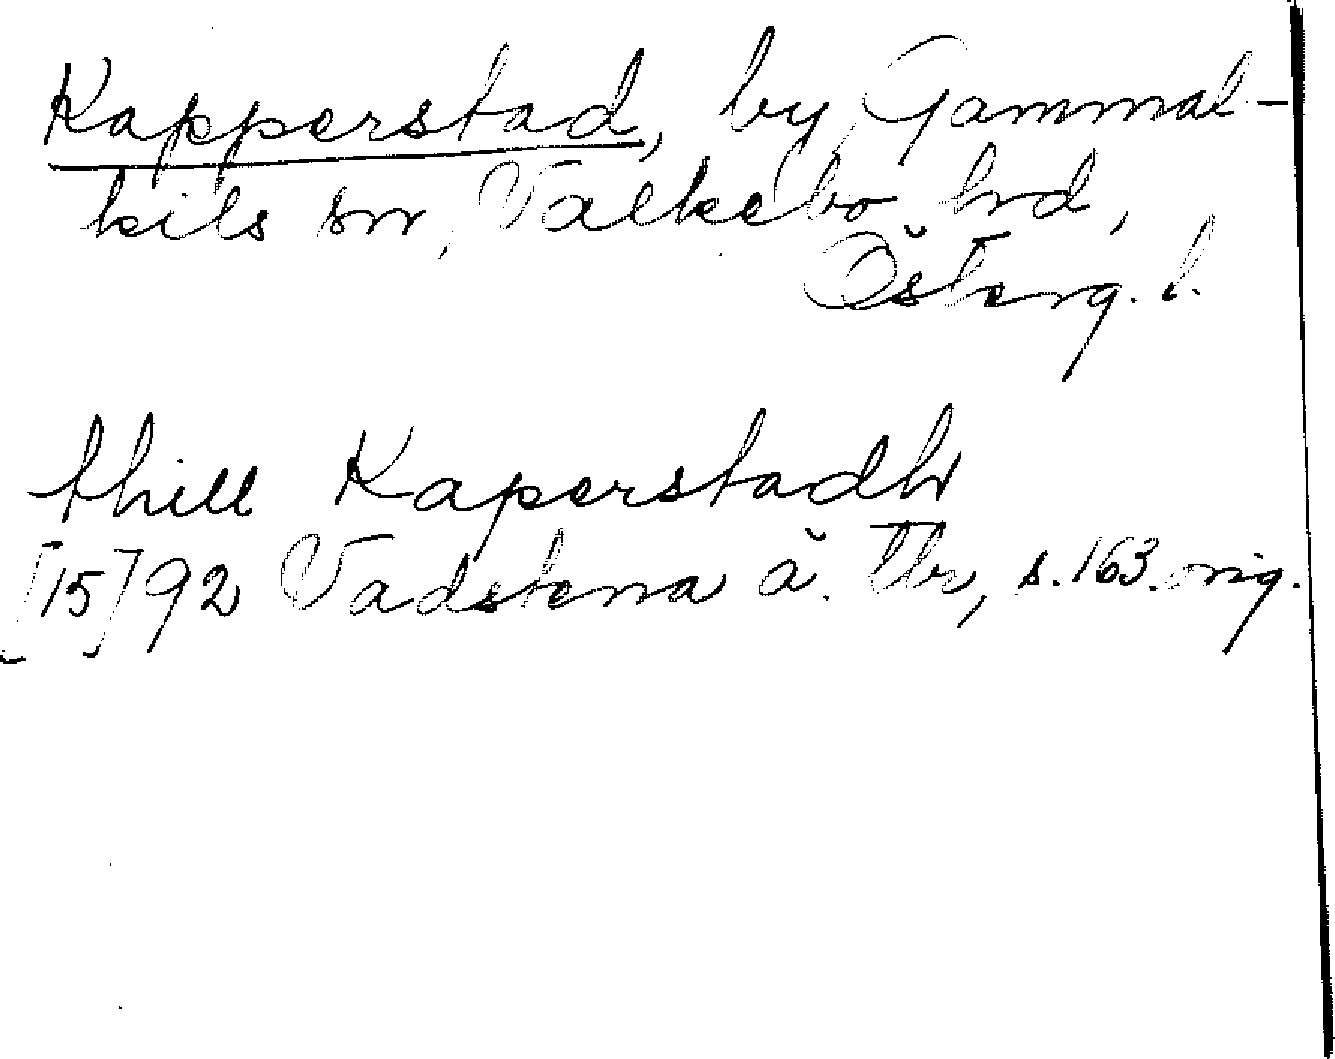 Kapperstad, by, Gammal-
kils sn, Valkebo hrd,
Österg. l.
thill Kaperstadh
[15]92 Vadstena ä. Tb, s. 163. orig.